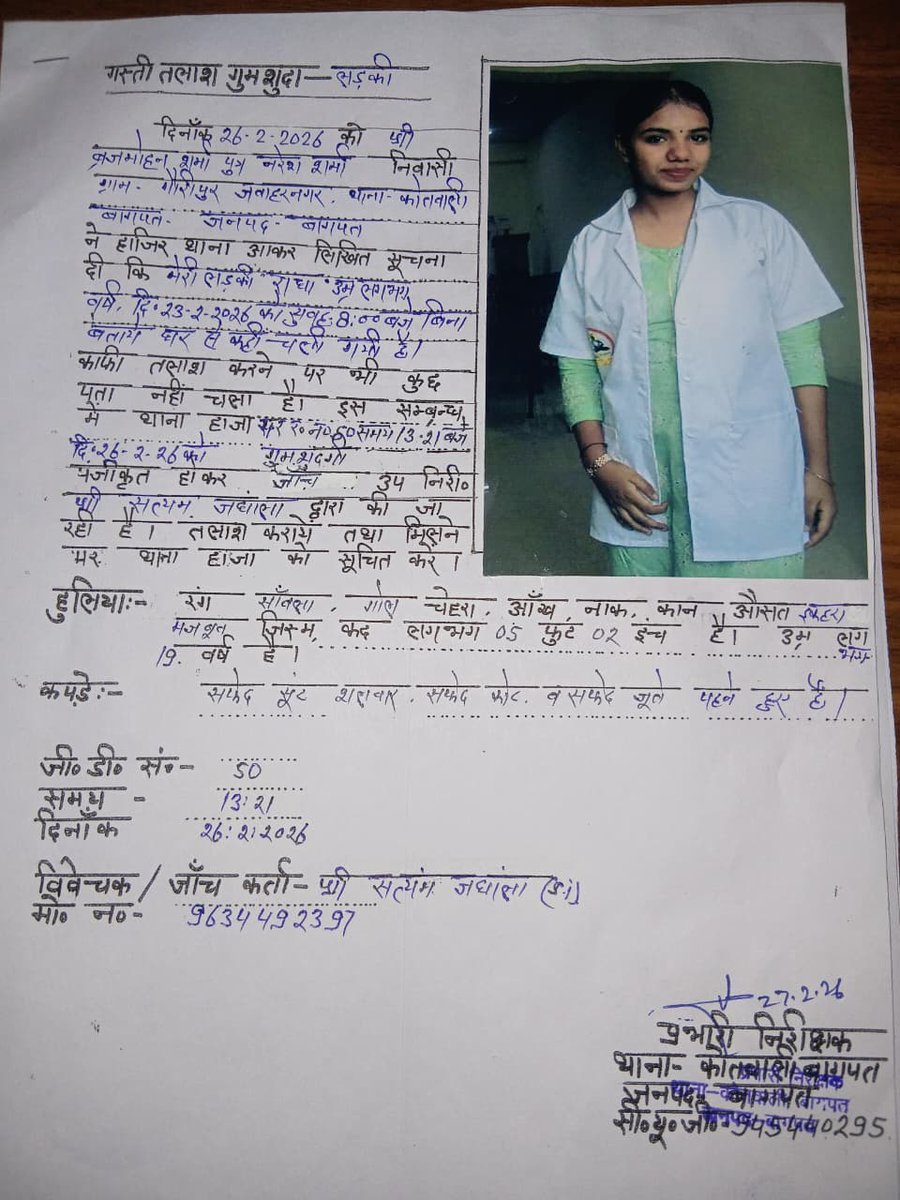 गस्ती तलाश गुमशुदा — लड़की
दिनाँक 26-2-2026 को श्री
ब्रजमोहन शर्मा पुत्र नरेश शर्मा निवासी
ग्राम- गौरीपुर जवाहरनगर. थाना- कोतवाली
बागपत- जनपद- बागपत
ने हाजिर थाना आकर लिखित सूचना
दी कि मेरी लड़की राधा उम्र लगभग
वर्ष. दि॰ 23-2-2026 को सुबह 8:00 बजे बिना
बताये घर से कही चली गयी है।
काफी तलाश करने पर भी कुछ
पता नहीं चला है। इस सम्बन्ध
में थाना हाजा पर समय 13:21 बजे
दि॰ 26-2-26 को गुमशुदगी
पंजीकृत होकर जाँच उप निरी॰
श्री सत्यम जधाला द्वारा की जा
रही है। तलाश कराये तथा मिलने
पर थाना हाजा को सूचित करें।
हुलिया:- रंग साँवला, गोल चेहरा, आँख, नाक, कान औसत इकहरा
मजबूत जिस्म, कद लगभग 05 फुट 02 इंच है। उम्र लगभग
19. वर्ष है।
कपड़े:- सफेद सूट शलवार. सफेद कोट. व सफेद जूते पहने हुए है।
जी॰ डी॰ सं॰- 50
समय - 13:21
दिनाँक 26:2:2026
विवेचक / जाँच कर्ता- श्री सत्यम जधाला
मो॰ न॰- 9634492397
27.2.26
प्रभारी निरीक्षक
थाना- कोतवाली बागपत
जनपद- बागपत
सी॰यू॰जी॰- 9454440295